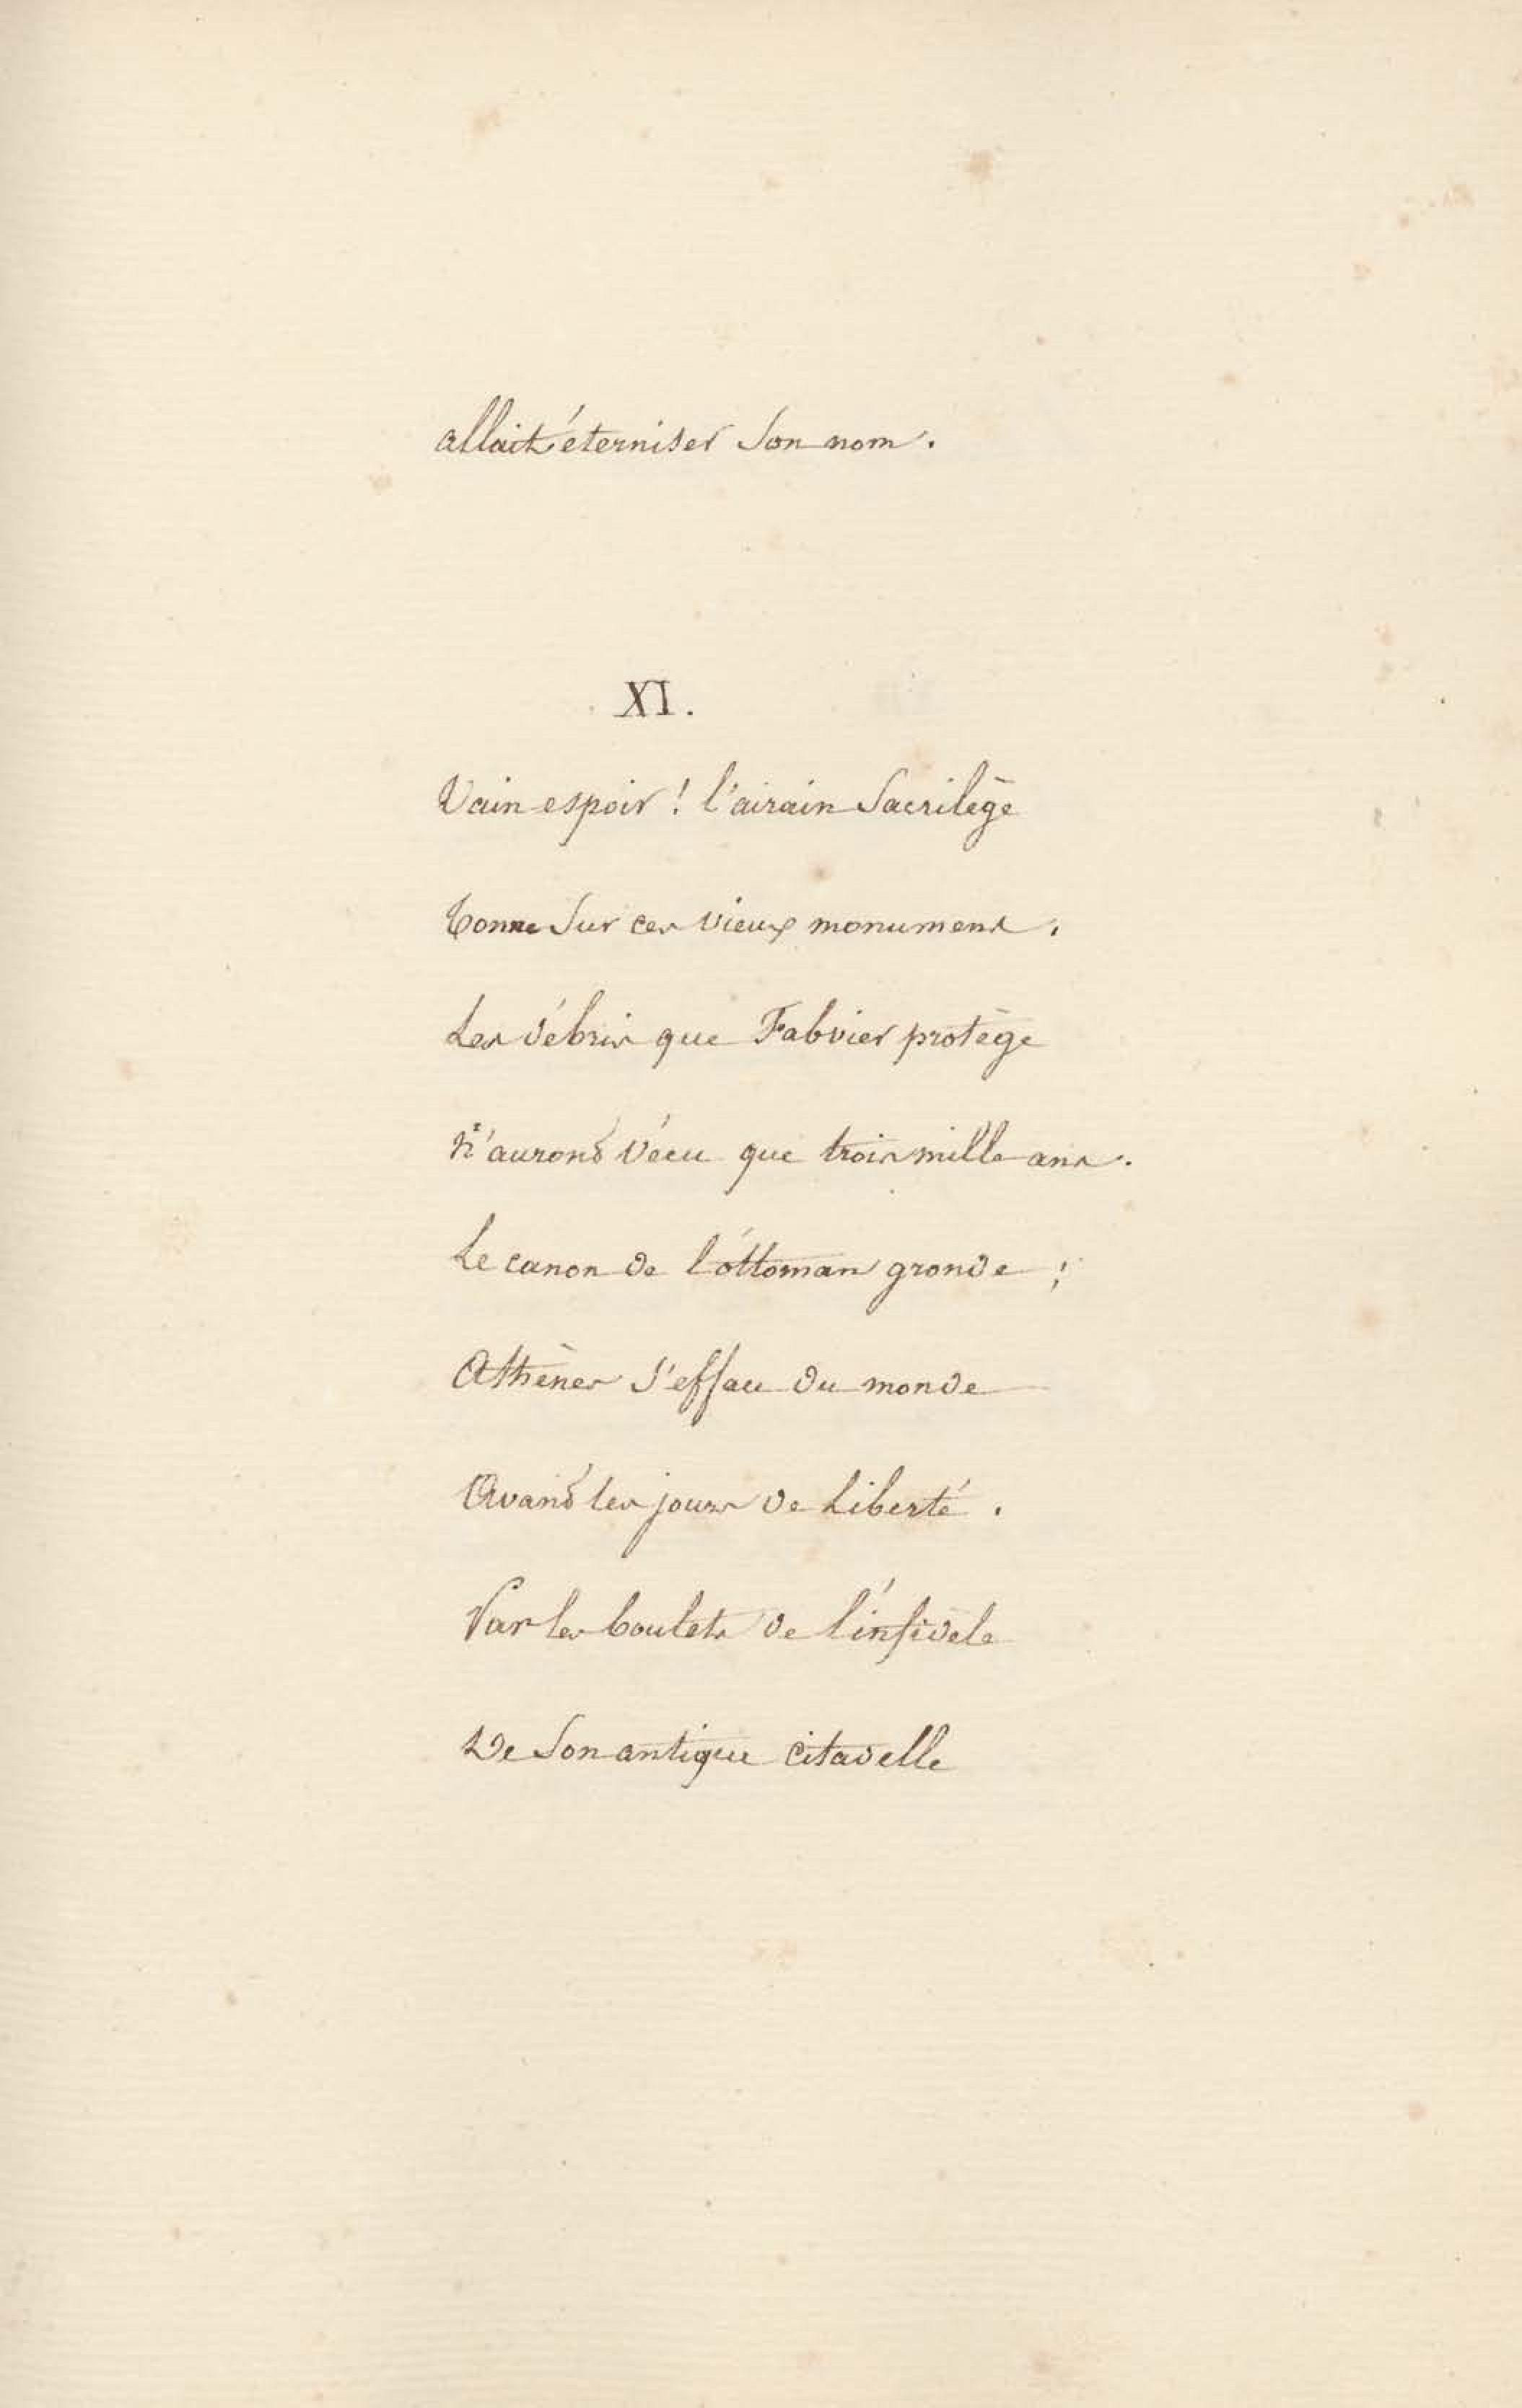 allait éterniser son nom.
XI.
Vain espoir ! l'airain Sacrilège
Tonne Sur ces vieux monumens.
Les débris que Fabvier protège
N'auront vécu que trois mille ans.
Le canon de l'ottoman gronde ;
Athènes S'efface du monde
Avant les jours de Liberté.
Par les boulets de l'infidèle
De Son antique citadelle